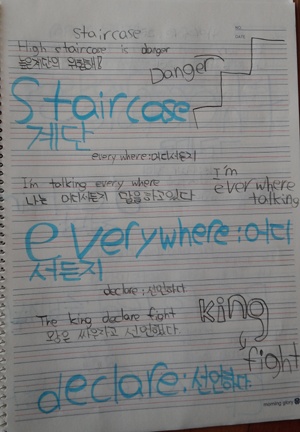 staircase
High staircase is danger
높은계단의 위험해!
Danger
Staircase
계단
every where:어디서든지
I'm talking every where
나는 어디서든지 말을하고있다
I'm
everwhere
talking
everywhere:어디
서든지
declare:선언하다
The king declare fight
왕은 싸우기고 선언했다
king
fight
declare:선언하다